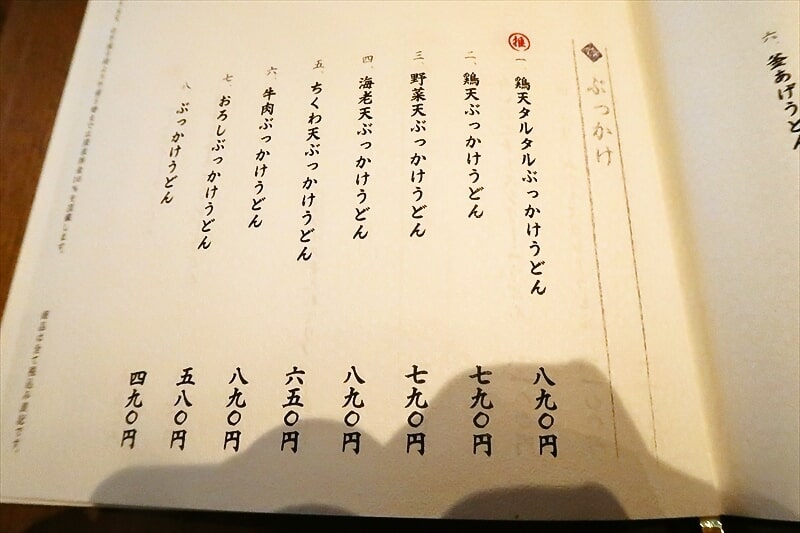 六 釜あげうどん
ぶっかけ
推
一、鶏天タルタルぶっかけうどん 八九〇円
二、鶏天ぶっかけうどん 七九〇円
三、野菜天ぶっかけうどん 七九〇円
四、海老天ぶっかけうどん 八九〇円
五、ちくわ天ぶっかけうどん 六五〇円
六、牛肉ぶっかけうどん 八九〇円
七、おろしぶっかけうどん 五八〇円
八、ぶっかけうどん 四九〇円
商品は全て税込み表記です。